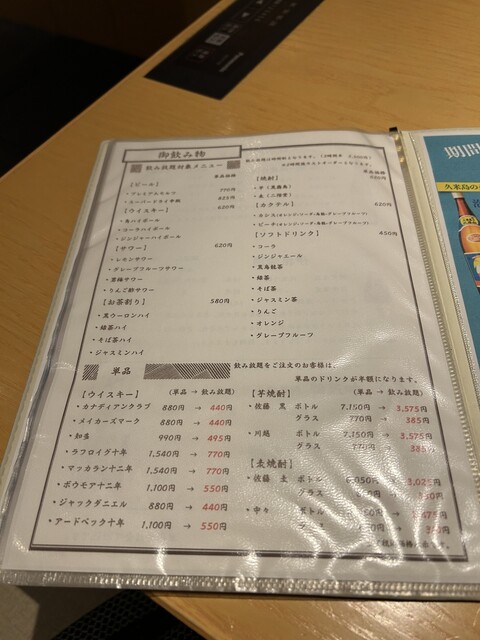 御飲み物
飲み放題対象メニュー
単品価格
【ビール】
・プレミアムモルツ 770円
・スーパードライ中瓶 825円
【ウイスキー】 620円
・角ハイボール
・コーラハイボール
・ジンジャーハイボール
【サワー】 620円
・レモンサワー
・グレープフルーツサワー
・りんご酢サワー
【お茶割り】 580円
・黒ウーロンハイ
・緑茶ハイ
・そば茶ハイ
・ジャスミンハイ
単品価格
【焼酎】
・芋（黒霧島）
・麦（二階堂）
【カクテル】 620円
・カシス（オレンジ・ソーダ・烏龍・グレープフルーツ）
・ピーチ（オレンジ・ソーダ・烏龍・グレープフルーツ）
【ソフトドリンク】 450円
・コーラ
・ジンジャエール
・黒烏龍茶
・緑茶
・そば茶
・ジャスミン茶
・りんご
・オレンジ
・グレープフルーツ
単品
飲み放題をご注文のお客様は、
単品のドリンクが半額になります。
【ウイスキー】 (単品 → 飲み放題)
・カナディアンクラブ 880円 → 440円
・メイカーズマーク 880円 → 440円
・知多 990円 → 495円
・ラフロイグ十年 1,540円 → 770円
・マッカラン十二年 1,540円 → 770円
・ボウモア十二年 1,100円 → 550円
・ジャックダニエル 880円 → 440円
・アードベック十年 1,100円 → 550円
【芋焼酎】 (単品 → 飲み放題)
・佐藤 黒 ボトル 7,150円 → 3,575円
グラス 770円 → 385円
・川越 ボトル 7,150円 → 3,575円
グラス 770円 → 385円
【麦焼酎】
・佐藤 麦 ボトル 6,050円 → 3,025円
グラス
・中々 ボトル
期間
久米島の
Panasonic